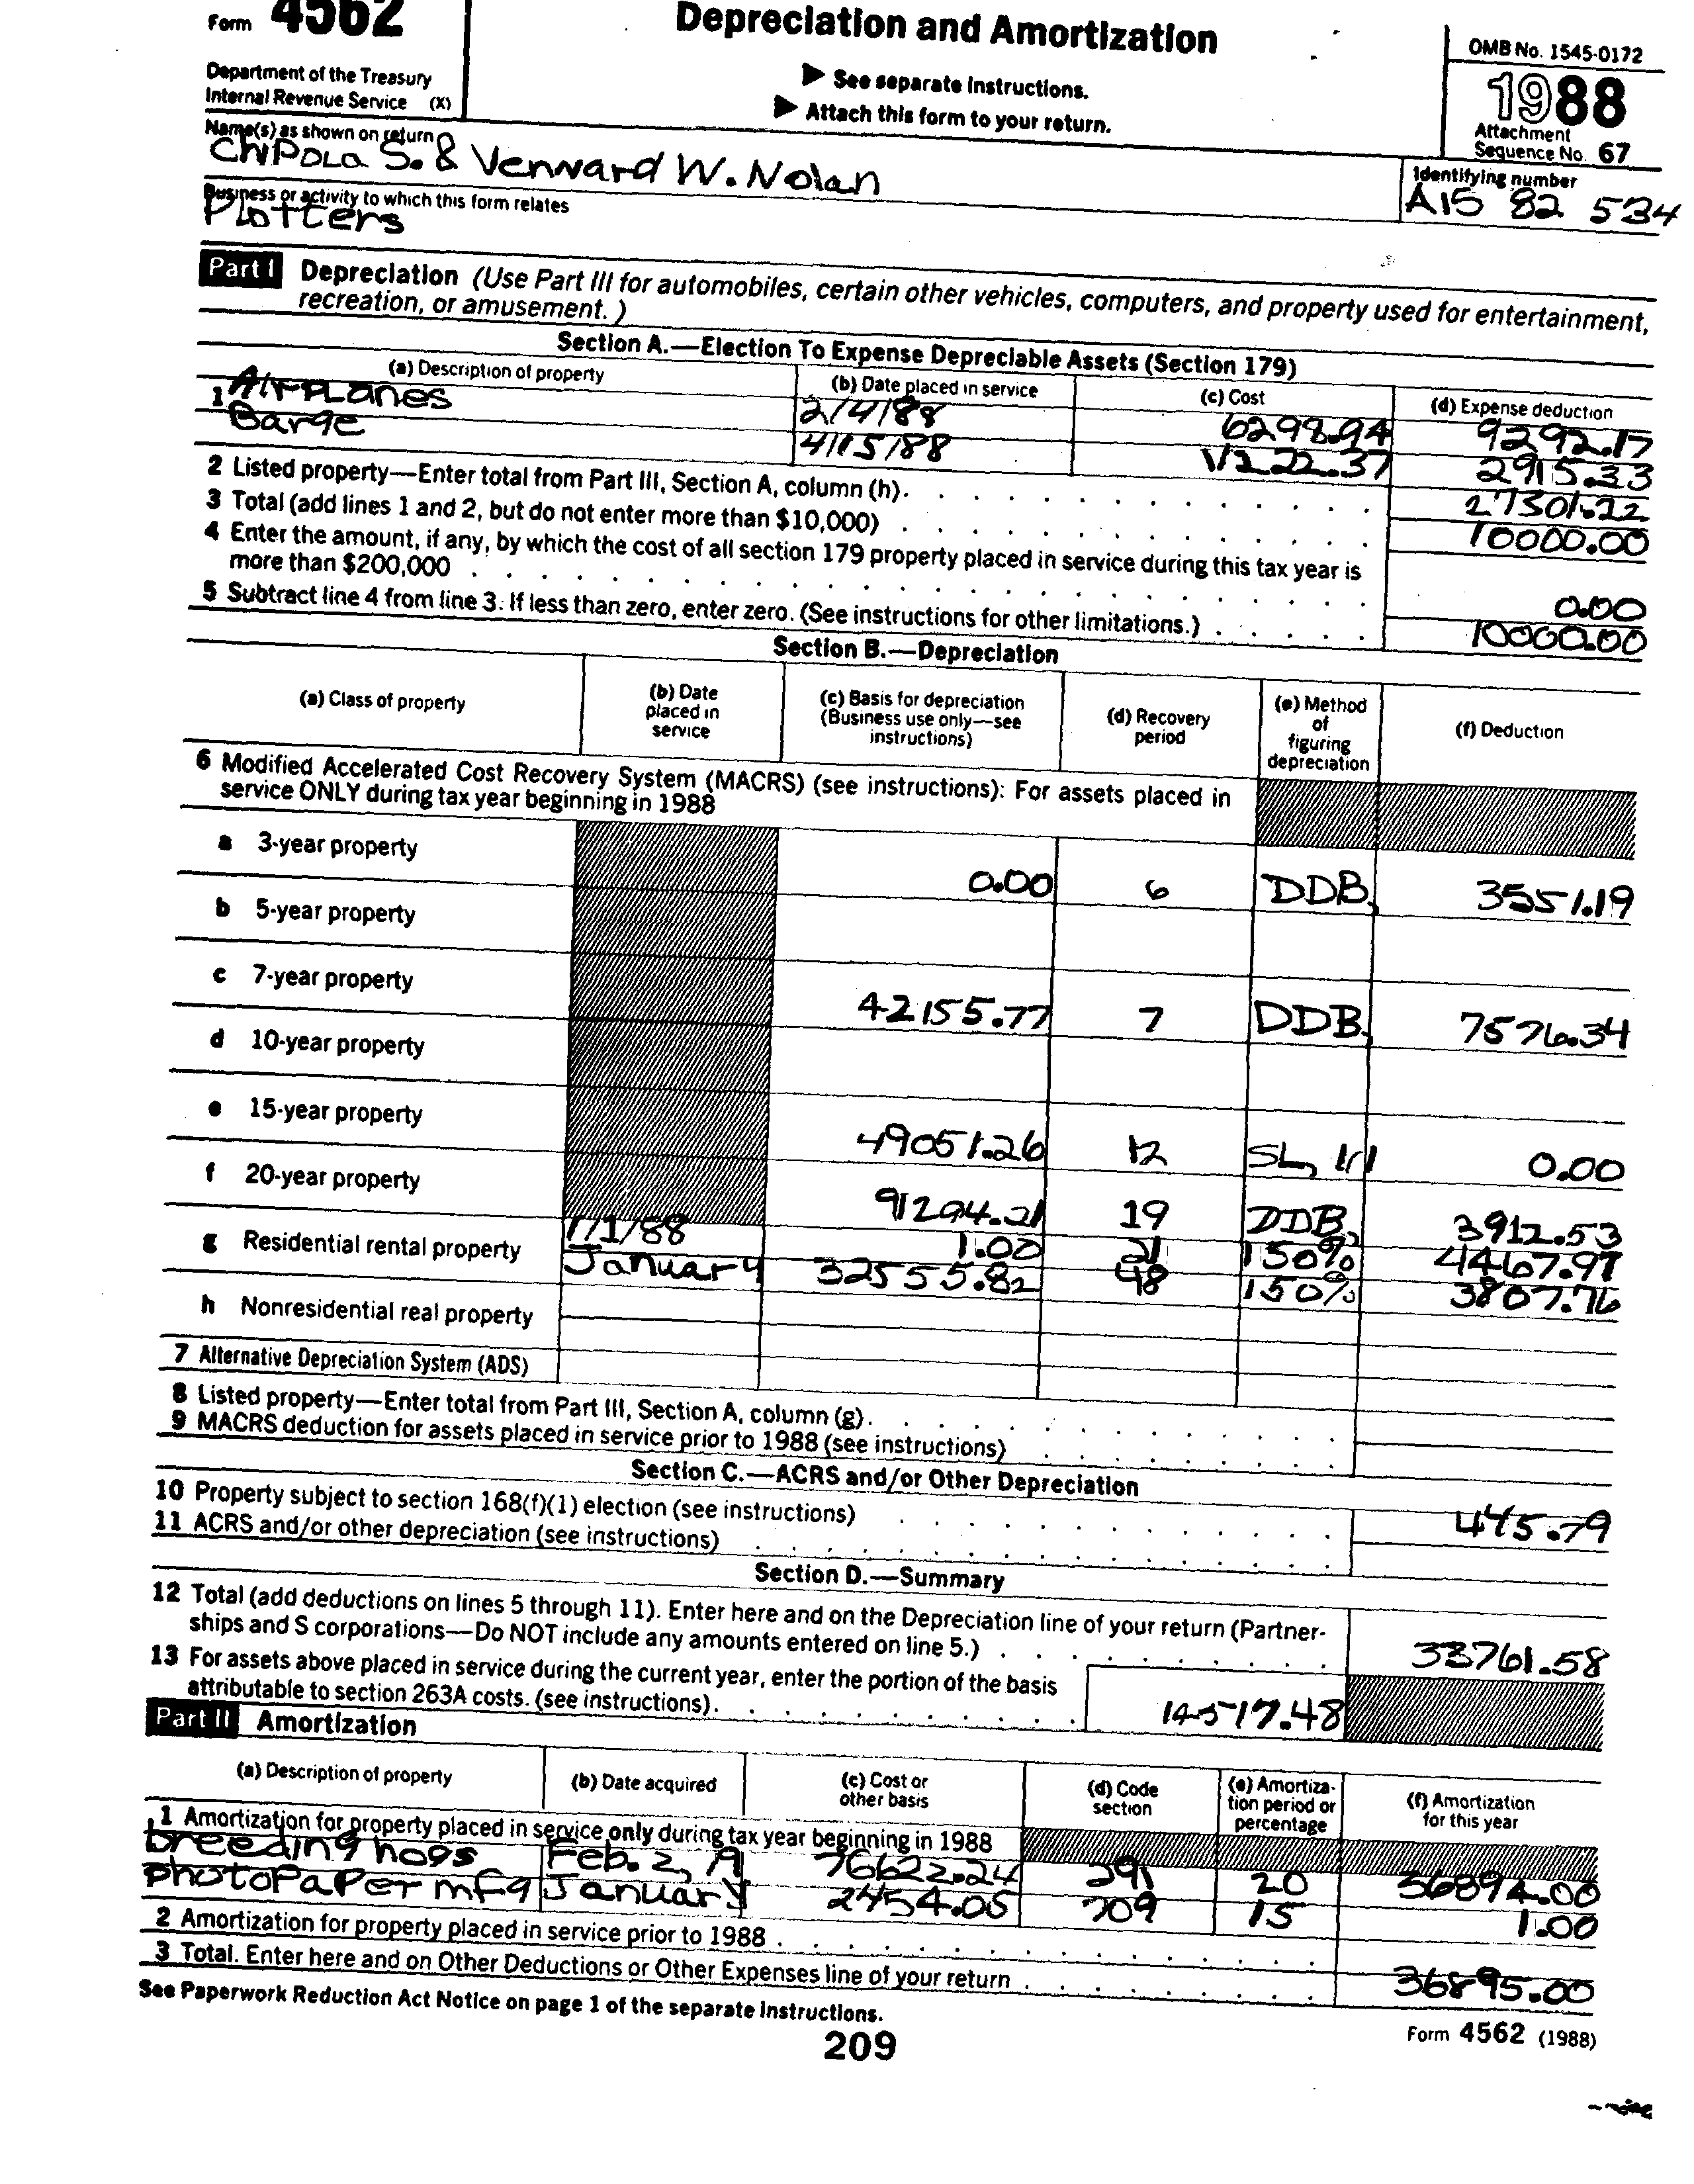 Form 4562
Depreciation and Amortization
OMB No. 1545-0172
Department of the Treasury
Internal Revenue Service (X)
▶ See separate Instructions.
▶ Attach this form to your return.
1988
Attachment
Sequence No. 67
Name(s) as shown on return
Chipola S. & Vennard W. Nolan
Identifying number
A15 82 534
Business or activity to which this form relates
Plotters
Part I Depreciation (Use Part III for automobiles, certain other vehicles, computers, and property used for entertainment,
recreation, or amusement.)
Section A.—Election To Expense Depreciable Assets (Section 179)
(a) Description of property (b) Date placed in service (c) Cost (d) Expense deduction
1 Airplanes 2/4/88 6298.94 9292.17
Barge 4/15/88 1222.37 2915.33
2 Listed property—Enter total from Part III, Section A, column (h). 27301.22
3 Total (add lines 1 and 2, but do not enter more than $10,000) 10000.00
4 Enter the amount, if any, by which the cost of all section 179 property placed in service during this tax year is
more than $200,000 0.00
5 Subtract line 4 from line 3. If less than zero, enter zero. (See instructions for other limitations.) 10000.00
Section B.—Depreciation
(a) Class of property (b) Date placed in service (c) Basis for depreciation (Business use only—see instructions) (d) Recovery period (e) Method of figuring depreciation (f) Deduction
6 Modified Accelerated Cost Recovery System (MACRS) (see instructions): For assets placed in
service ONLY during tax year beginning in 1988
a 3-year property 0.00 6 DDB, 3551.19
b 5-year property
c 7-year property 42155.77 7 DDB, 7576.34
d 10-year property
e 15-year property 49051.26 12 SL, 0.00
f 20-year property 91294.21 19 DDB, 3912.53
g Residential rental property 1/1/88 1.00 21 150% 4467.97
January 32555.82 48 150% 3807.76
h Nonresidential real property
7 Alternative Depreciation System (ADS)
8 Listed property—Enter total from Part III, Section A, column (g).
9 MACRS deduction for assets placed in service prior to 1988 (see instructions)
Section C.—ACRS and/or Other Depreciation
10 Property subject to section 168(f)(1) election (see instructions) 445.79
11 ACRS and/or other depreciation (see instructions)
Section D.—Summary
12 Total (add deductions on lines 5 through 11). Enter here and on the Depreciation line of your return (Partner-
ships and S corporations—Do NOT include any amounts entered on line 5.) 33761.58
13 For assets above placed in service during the current year, enter the portion of the basis
attributable to section 263A costs. (see instructions). 14517.48
Part II Amortization
(a) Description of property (b) Date acquired (c) Cost or other basis (d) Code section (e) Amortiza-tion period or percentage (f) Amortization for this year
1 Amortization for property placed in service only during tax year beginning in 1988
breeding hogs Feb. 2, 19 76622.24 291 20 36894.00
photopaper mfg January 2454.05 709 15 1.00
2 Amortization for property placed in service prior to 1988
3 Total. Enter here and on Other Deductions or Other Expenses line of your return 36895.00
See Paperwork Reduction Act Notice on page 1 of the separate Instructions.
209
Form 4562 (1988)